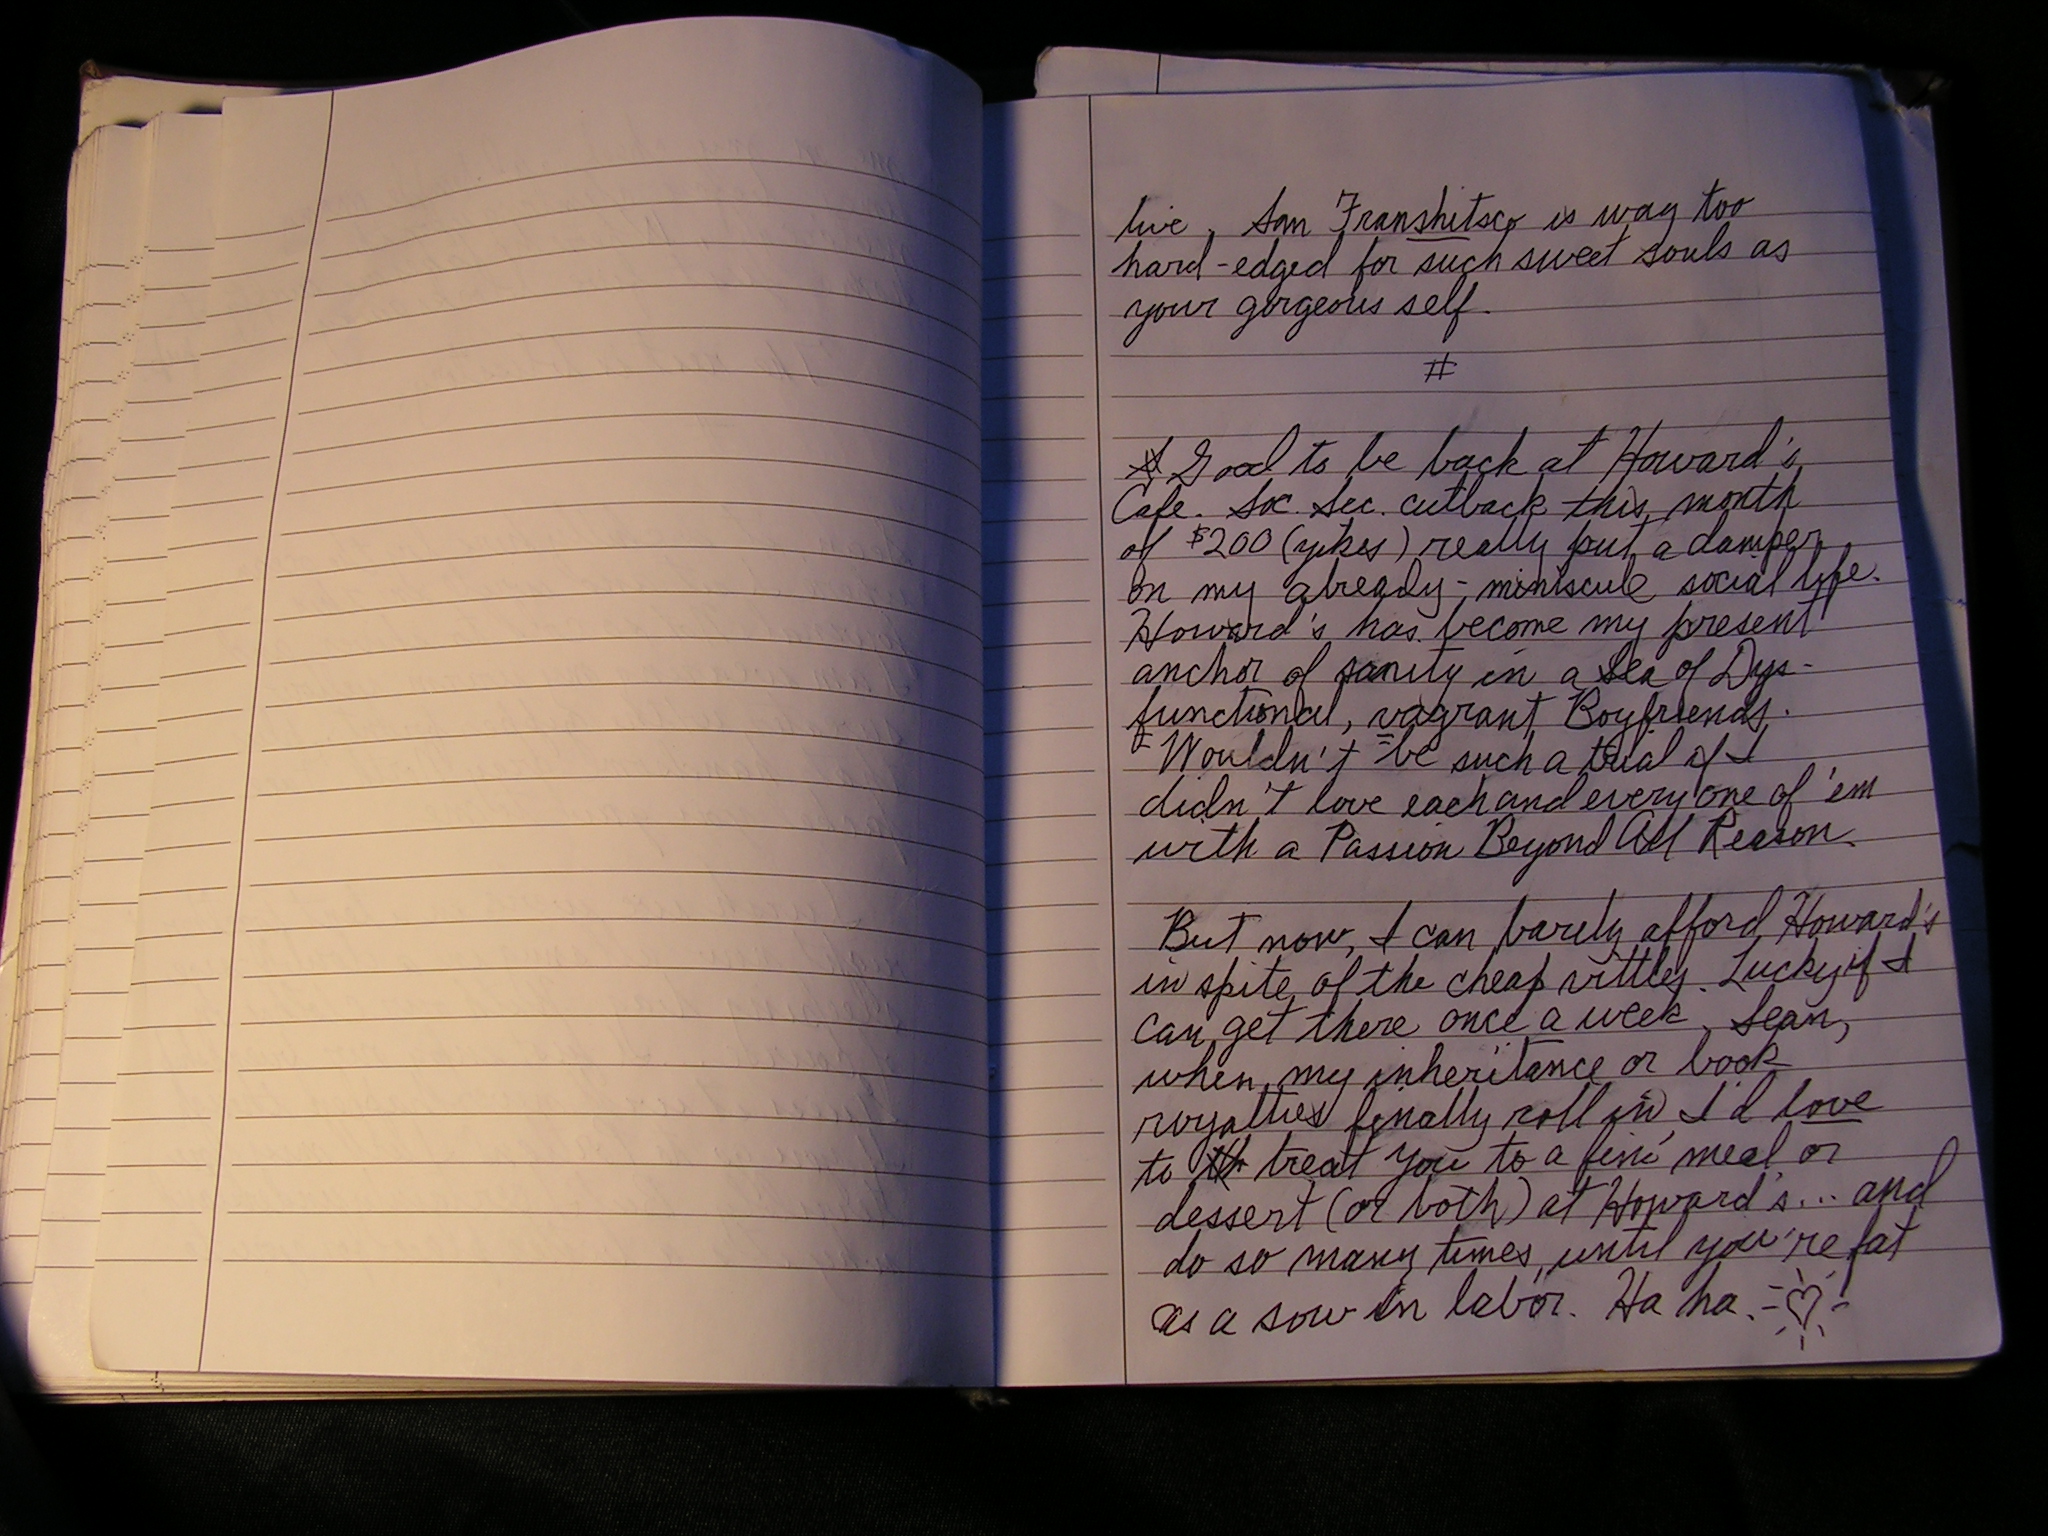 live. San Franshitsco is way too
hard-edged for such sweet souls as
your gorgeous self.
#
Good to be back at Howard's
Cafe. Soc. Sec. cutback this month
of $200 (yikes) really put a damper
on my already-miniscule social life.
Howard's has become my present
anchor of sanity in a Sea of Dys-
functional, vagrant Boyfriends.
Wouldn't be such a trial if I
didn't love each and every one of 'em
with a Passion Beyond All Reason.
But now, I can barely afford Howard's
in spite of the cheap vittles. Lucky if I
can get there once a week. Sean,
when my inheritance or book
royalties finally roll in I'd love
to treat you to a fine meal or
dessert (or both) at Howard's... and
do so many times, until you're fat
as a sow in labor. Ha ha.